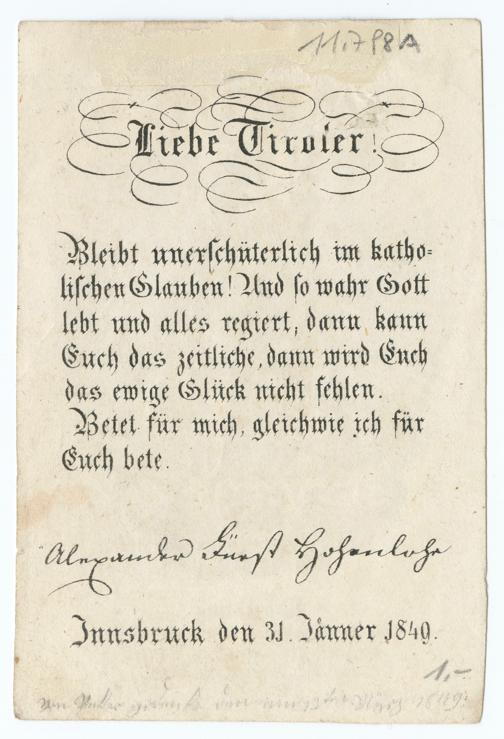 11.798A
Liebe Tiroler!
Bleibt unerschüterlich im katho-
lischen Glauben! Und so wahr Gott
lebt und alles regiert, dann kann
Euch das zeitliche, dann wird Euch
das ewige Glück nicht fehlen.
Betet für mich, gleichwie ich für
Euch bete.
Alexander Fürst Hohenlohe
Innsbruck den 31. Jänner 1849.
1,-
den 1849.